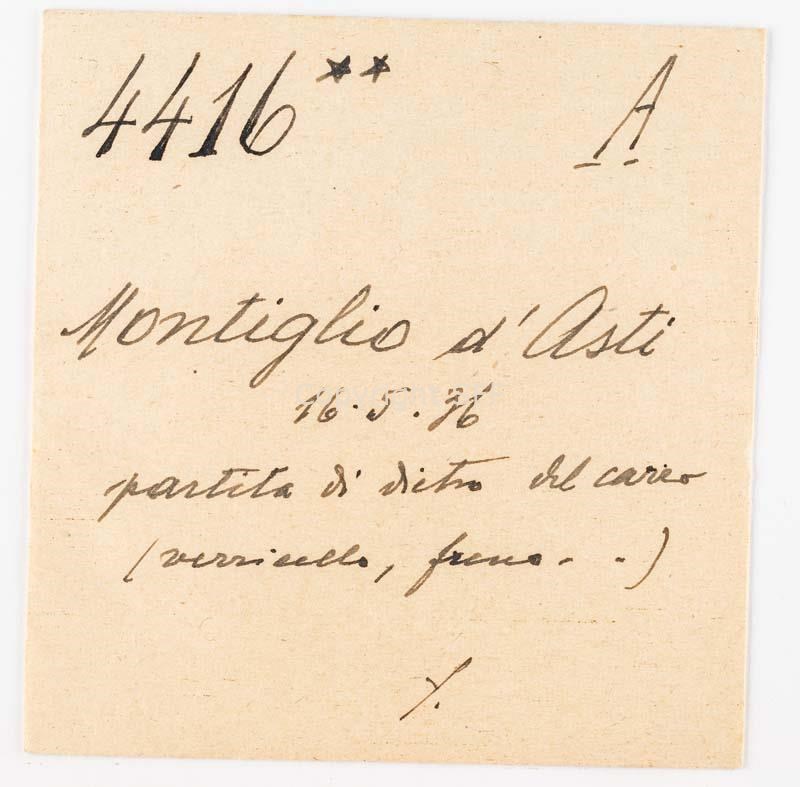 4416** A
Montiglio d'Asti
16.5.36
partita di dietro del carro
(verricello, freno . .)